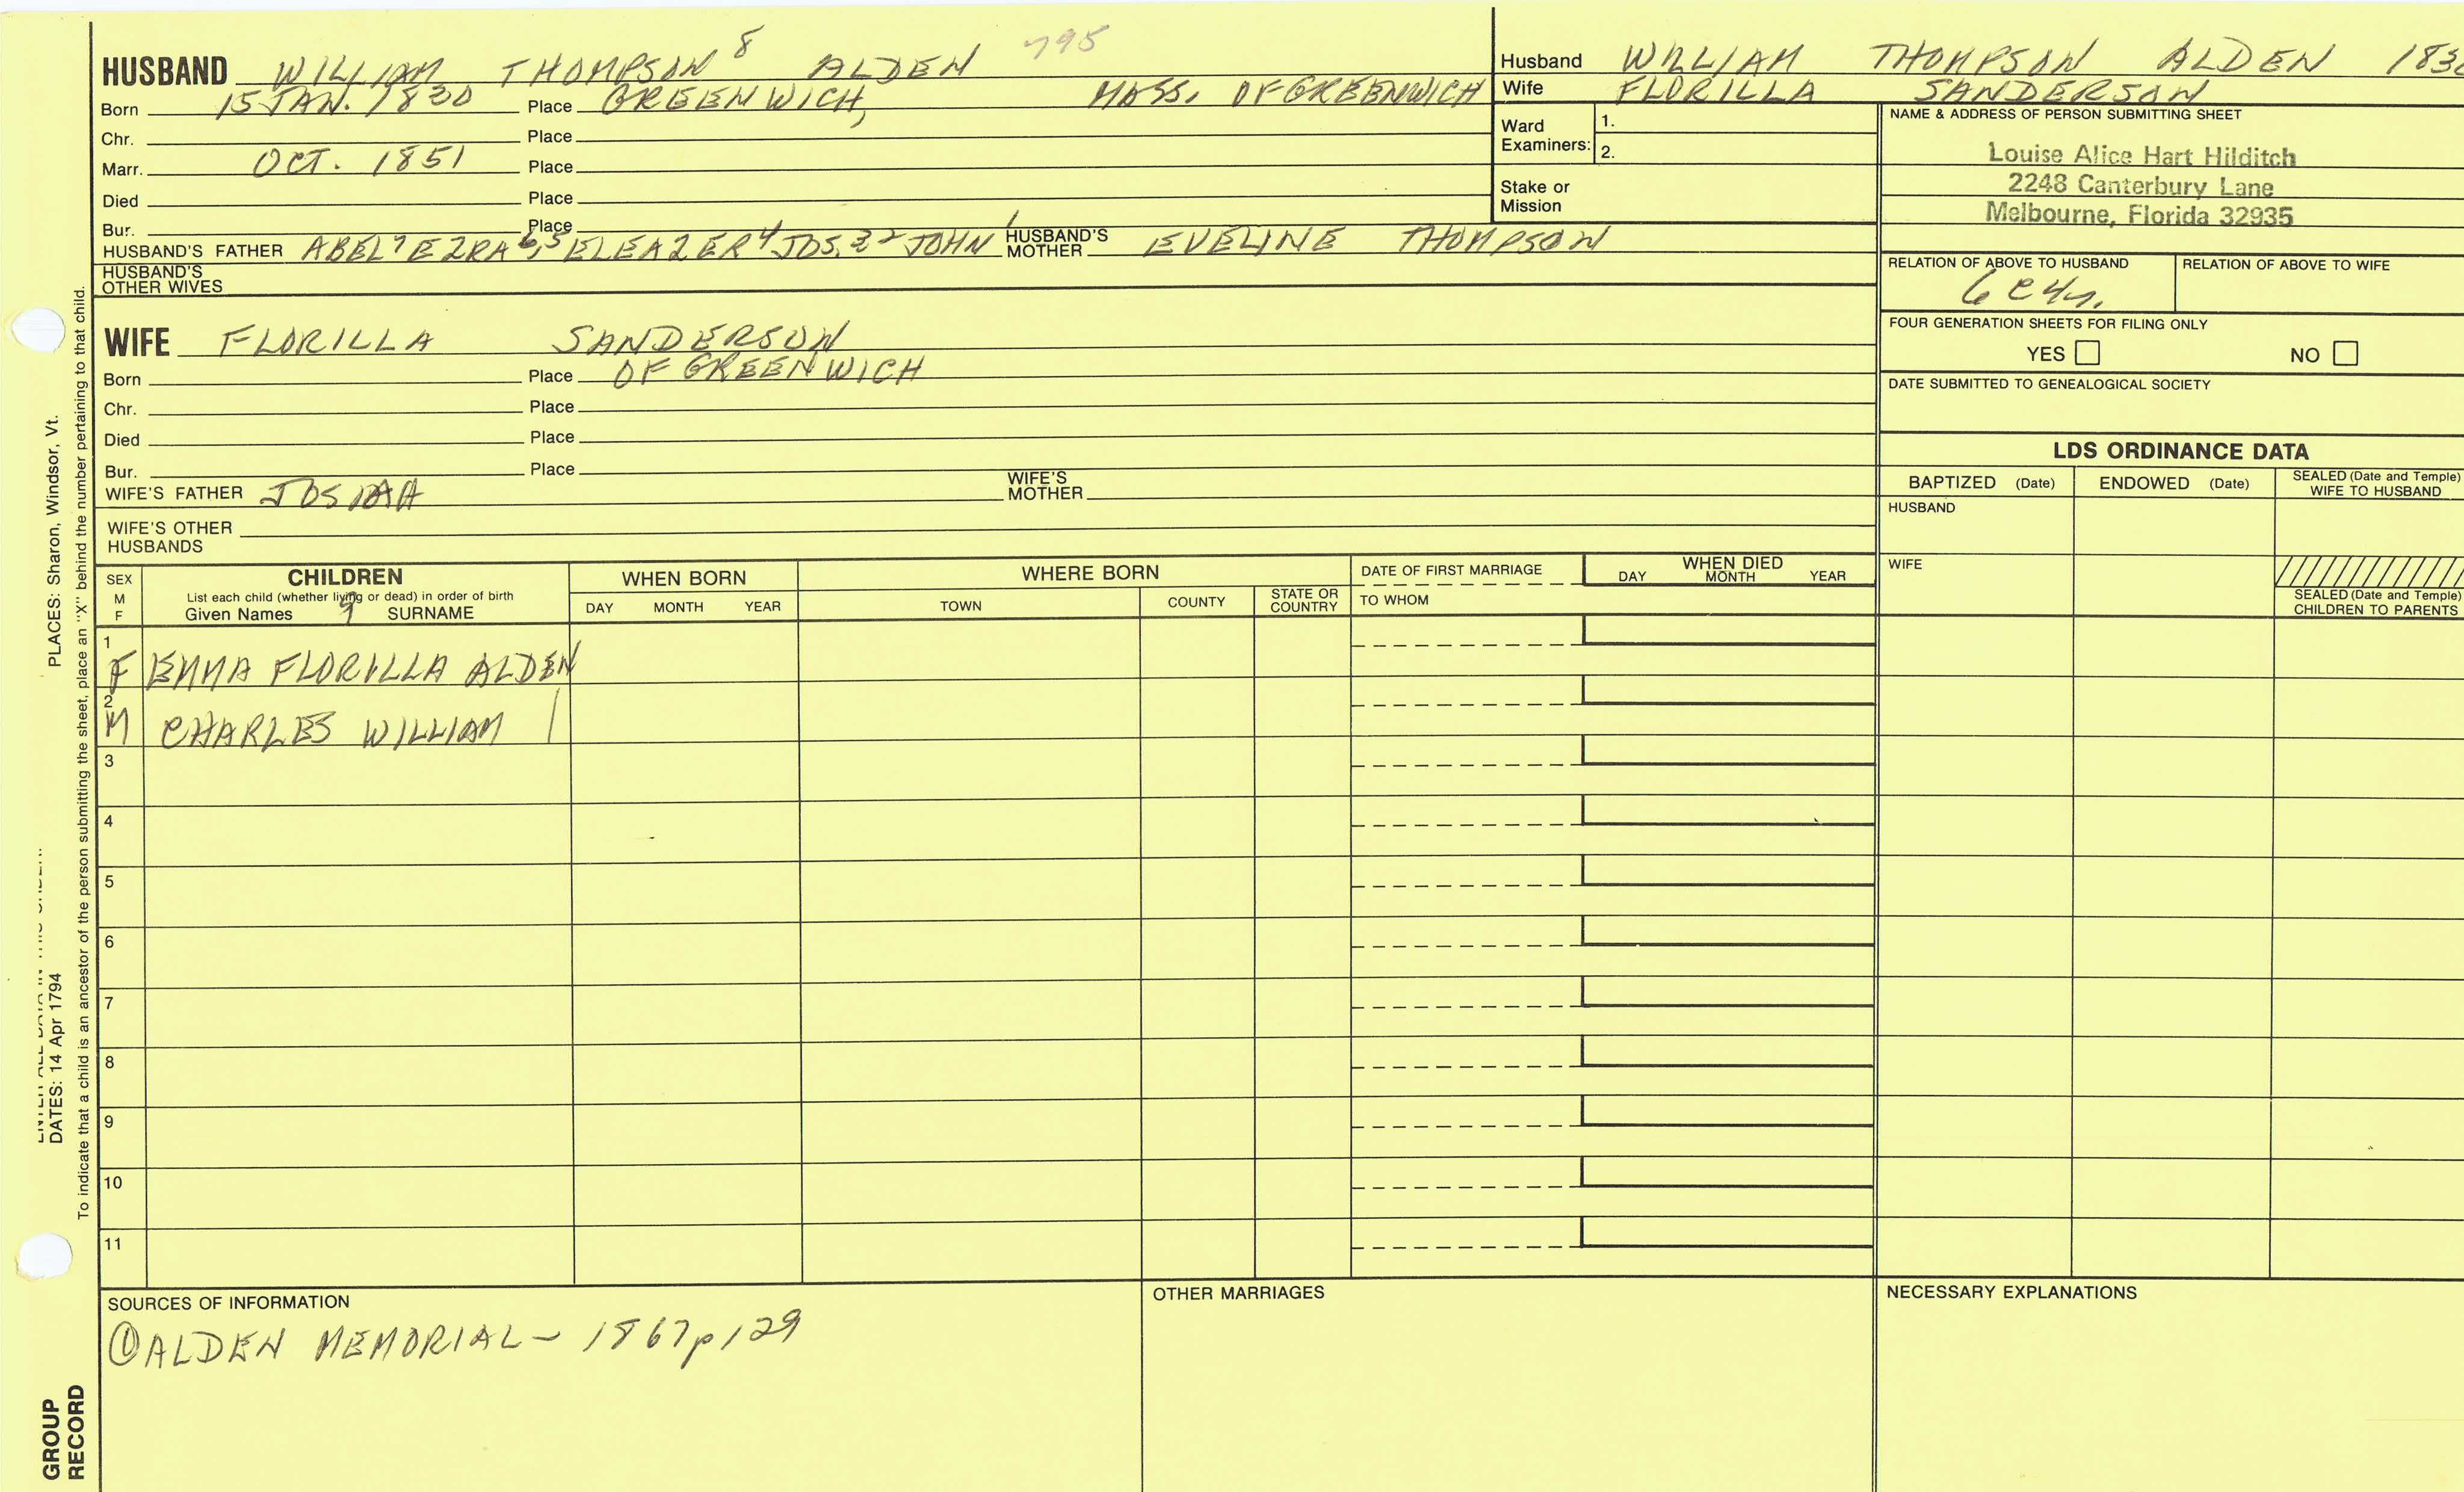 HUSBAND WILLIAM THOMPSON 8 ALDEN 795
Born 15 JAN. 1830 Place GREENWICH, MASS. OF GREENWICH
Chr. Place
Marr. OCT. 1851 Place
Died Place
Bur. Place
HUSBAND'S FATHER ABEL 7 EZRA 6,5 ELEAZER 4 JOS. 3 2 JOHN 1 HUSBAND'S MOTHER EVELINE THOMPSON
HUSBAND'S OTHER WIVES
WIFE FLORILLA SANDERSON
Born Place OF GREENWICH
Chr. Place
Died Place
Bur. Place
WIFE'S FATHER JOSIAH WIFE'S MOTHER
WIFE'S OTHER HUSBANDS
Husband WILLIAM THOMPSON ALDEN 183
Wife FLORILLA SANDERSON
Ward Examiners: 1.
2.
Stake or Mission
NAME & ADDRESS OF PERSON SUBMITTING SHEET
Louise Alice Hart Hilditch
2248 Canterbury Lane
Melbourne, Florida 32935
RELATION OF ABOVE TO HUSBAND RELATION OF ABOVE TO WIFE
FOUR GENERATION SHEETS FOR FILING ONLY
YES NO
DATE SUBMITTED TO GENEALOGICAL SOCIETY
LDS ORDINANCE DATA
BAPTIZED (Date) ENDOWED (Date) SEALED (Date and Temple) WIFE TO HUSBAND
HUSBAND
WIFE
SEALED (Date and Temple) CHILDREN TO PARENTS
SEX M F
CHILDREN
List each child (whether living or dead) in order of birth
Given Names 9 SURNAME
WHEN BORN
DAY MONTH YEAR
WHERE BORN
TOWN COUNTY STATE OR COUNTRY
DATE OF FIRST MARRIAGE
TO WHOM
WHEN DIED
DAY MONTH YEAR
1 F EMMA FLORILLA ALDEN
2 M CHARLES WILLIAM
3
4
5
6
7
8
9
10
11
SOURCES OF INFORMATION
① ALDEN MEMORIAL - 1867 p 129
OTHER MARRIAGES
NECESSARY EXPLANATIONS
PLACES: Sharon, Windsor, Vt.
DATES: 14 Apr 1794
To indicate that a child is an ancestor of the person submitting the sheet, place an "X" behind the number pertaining to that child.
GROUP RECORD